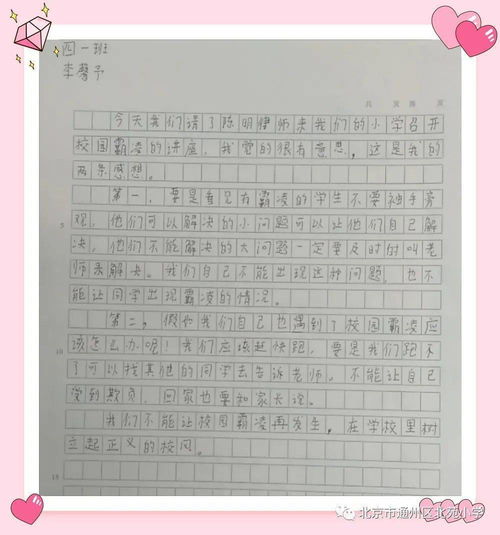 四一班
李馨予
共 页 第 页
今天我们请了陈明律师来我们的小学召开
校园霸凌的讲座，我觉的很有意思，这是我的
两条感想。
第一，要是看见有霸凌的学生不要袖手旁
观，他们可以解决的小问题可以让他们自己解
5
决，他们不能解决的大问题一定要及时时叫老
师来解决。我们自己不能出现这种问题，也不
能让同学出现霸凌的情况。
第二，假如我们自己也遇到了校园霸凌应
该怎么办呢！我们应该赶快跑，要是我们跑不
10
了可以找其他的同学去告诉老师。不能让自己
受到欺负，回家也要和家长说。
我们不能让校园霸凌再发生，在学校里树
立起正义的校风。
15
北京市通州区北苑小学